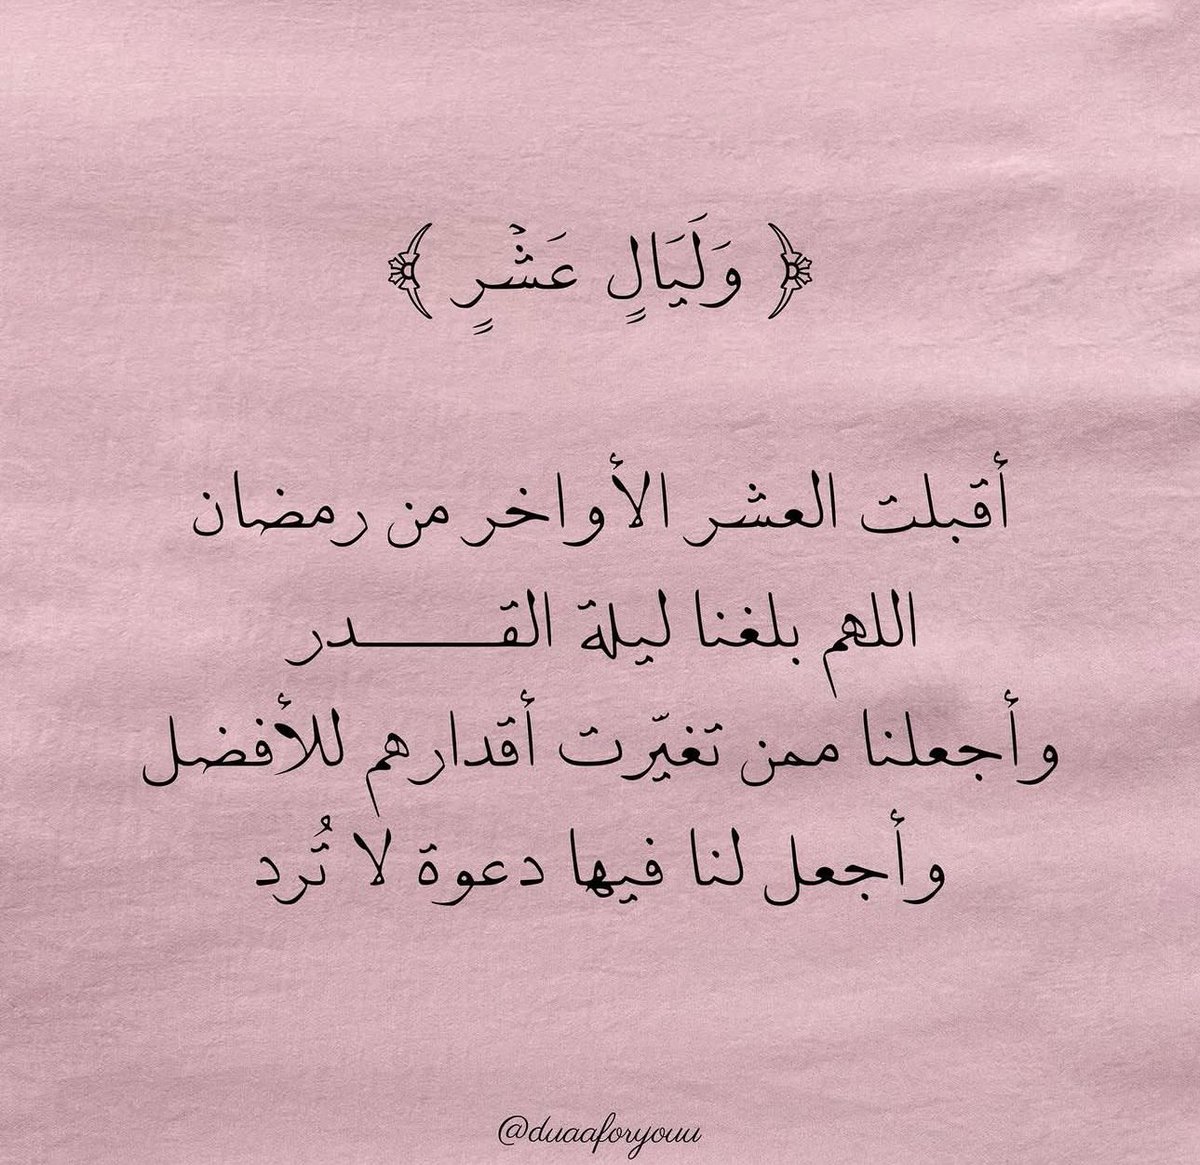 ﴿ وَلَيَالٍ عَشْرٍ ﴾
أقبلت العشر الأواخر من رمضان
اللهم بلغنا ليلة القـــــــدر
وأجعلنا ممن تغيّرت أقدارهم للأفضل
وأجعل لنا فيها دعوة لا تُرد
@duaaforyouu